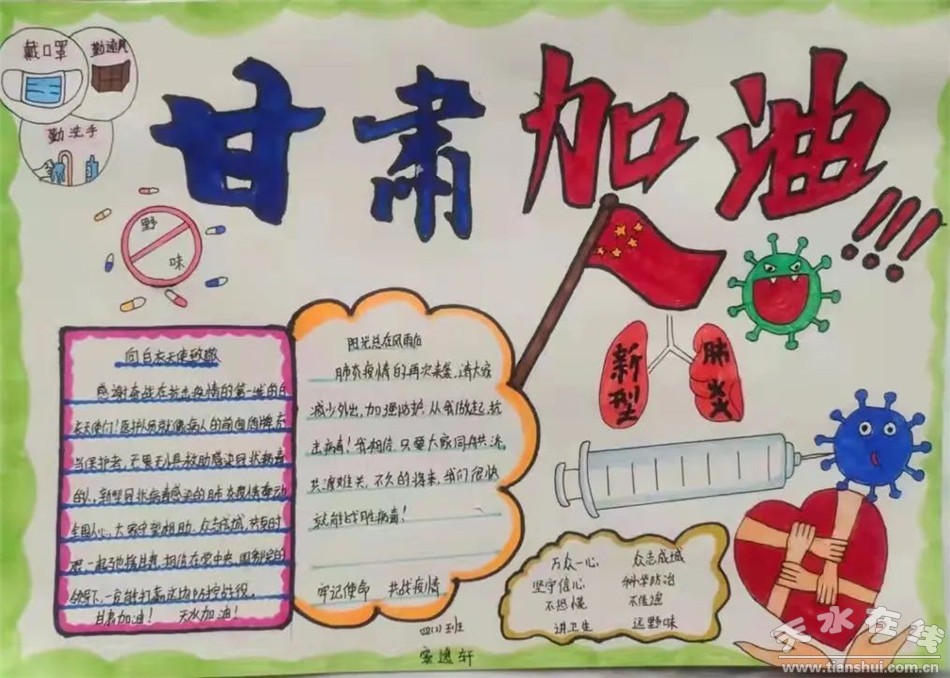 戴口罩
勤通风
勤洗手
甘肃加油!!!
野
味
新型
肺炎
向白衣天使致敬
感谢奋战在抗击疫情的第一线的白
衣天使们!医护人员就像病人的前面
当保护者,
的人,新型冠状病毒感染的肺炎疫情牵动
全国人心,大家守望相助,众志成城,
相信在党中央、国务院的
领导下,一定能打赢这场防控战役。
甘肃加油! 天水加油!
阳光总在风雨后
肺炎疫情的再次来袭,请大家
减少外出,加强防护,从我做起,抗
击病毒!我相信,只要大家同舟共济,
共渡难关,不久的将来,我们很快
就能战胜病毒!
牢记使命 共战疫情
万众一心 众志成城
坚守信心 科学防治
不恐慌 不传谣
讲卫生 远野味
四(2)班
天水在线
www.tianshui.com.cn